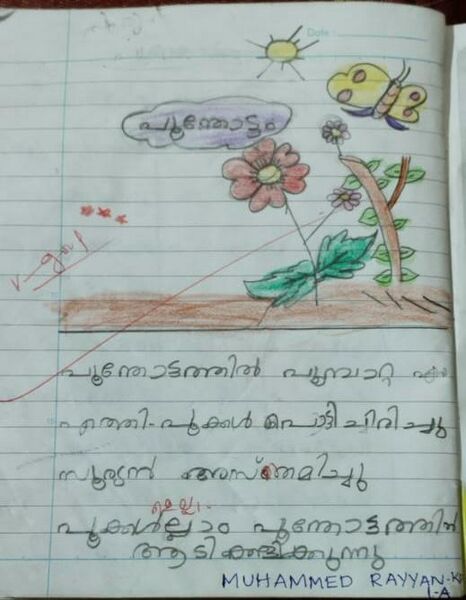 Date :
പൂന്തോട്ടം
v-good
പൂന്തോട്ടത്തിൽ പൂമ്പാറ്റ
എത്തി-പൂക്കൾ പൊട്ടിച്ചിരിച്ചു
സൂര്യൻ അസ്തമിച്ചു
പൂക്കൾല്ലാം പൂന്തോട്ടത്തിൽ
ആടികളിക്കുന്നു
MUHAMMED RAYYAN-K
1-A